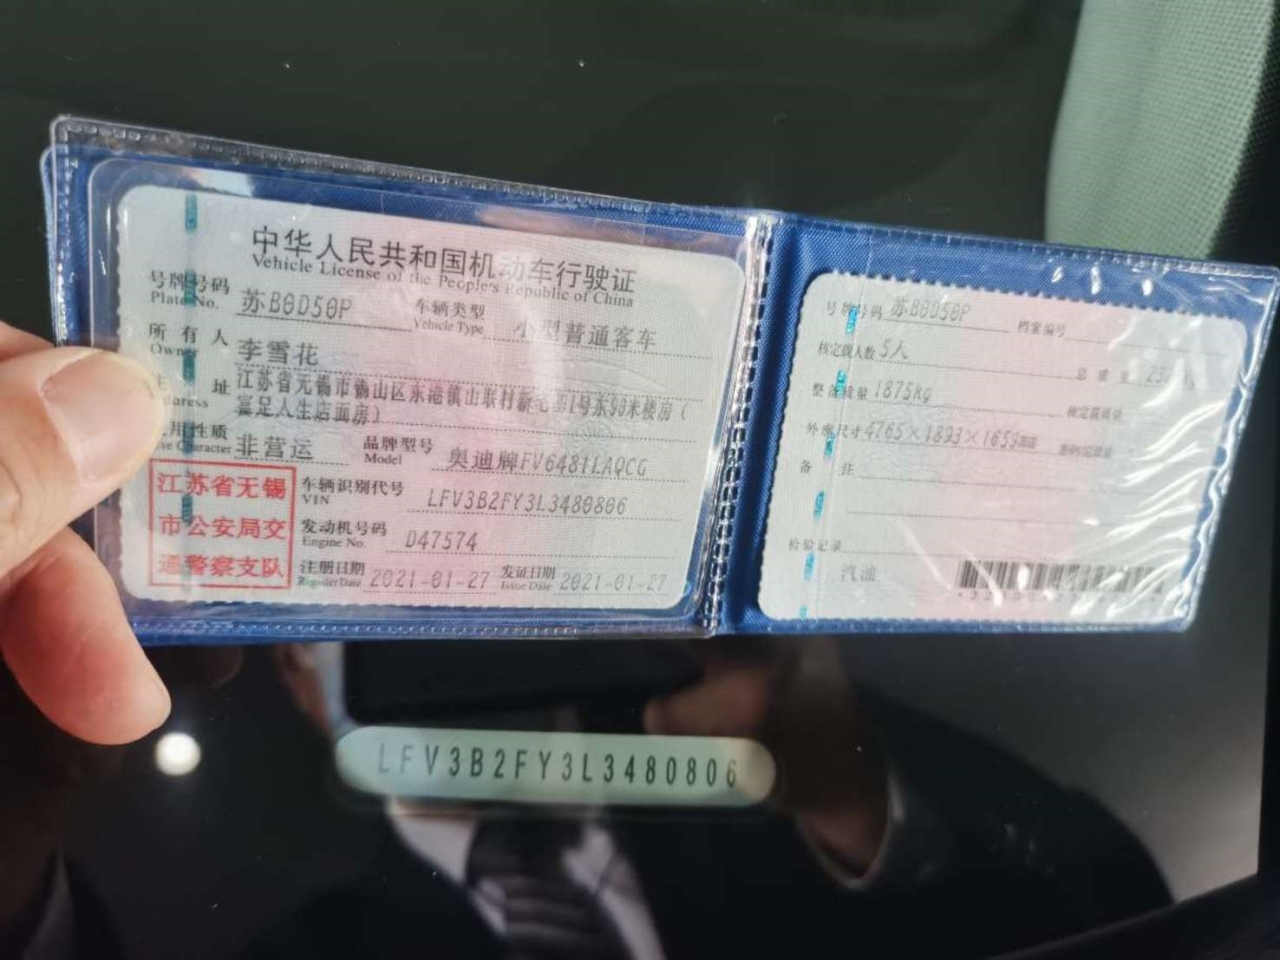 中华人民共和国机动车行驶证
Vehicle License of the People's Republic of China
号牌号码 苏B0D50P 车辆类型 小型普通客车
Plate No. Vehicle Type
所有人 李雪花
Owner
址 江苏省无锡市锡山区东港镇山联村新 1号东90米楼房(
富足人生店面房)
用性质 非营运 品牌型号 奥迪牌FV6481LAQCG
Character Model
车辆识别代号 LFV3B2FY3L3480806
VIN
发动机号码 D47574
Engine No.
注册日期 2021-01-27 发证日期 2021-01-27
Register Date Issue Date
江苏省无锡
市公安局交
通警察支队
号牌号码 苏B0D50P 档案编号
核定载人数 5人 总质量
整备质量 1875kg 核定载质量
外廓尺寸 4765×1893×1659
备注
检验记录
汽油
LFV3B2FY3L3480806